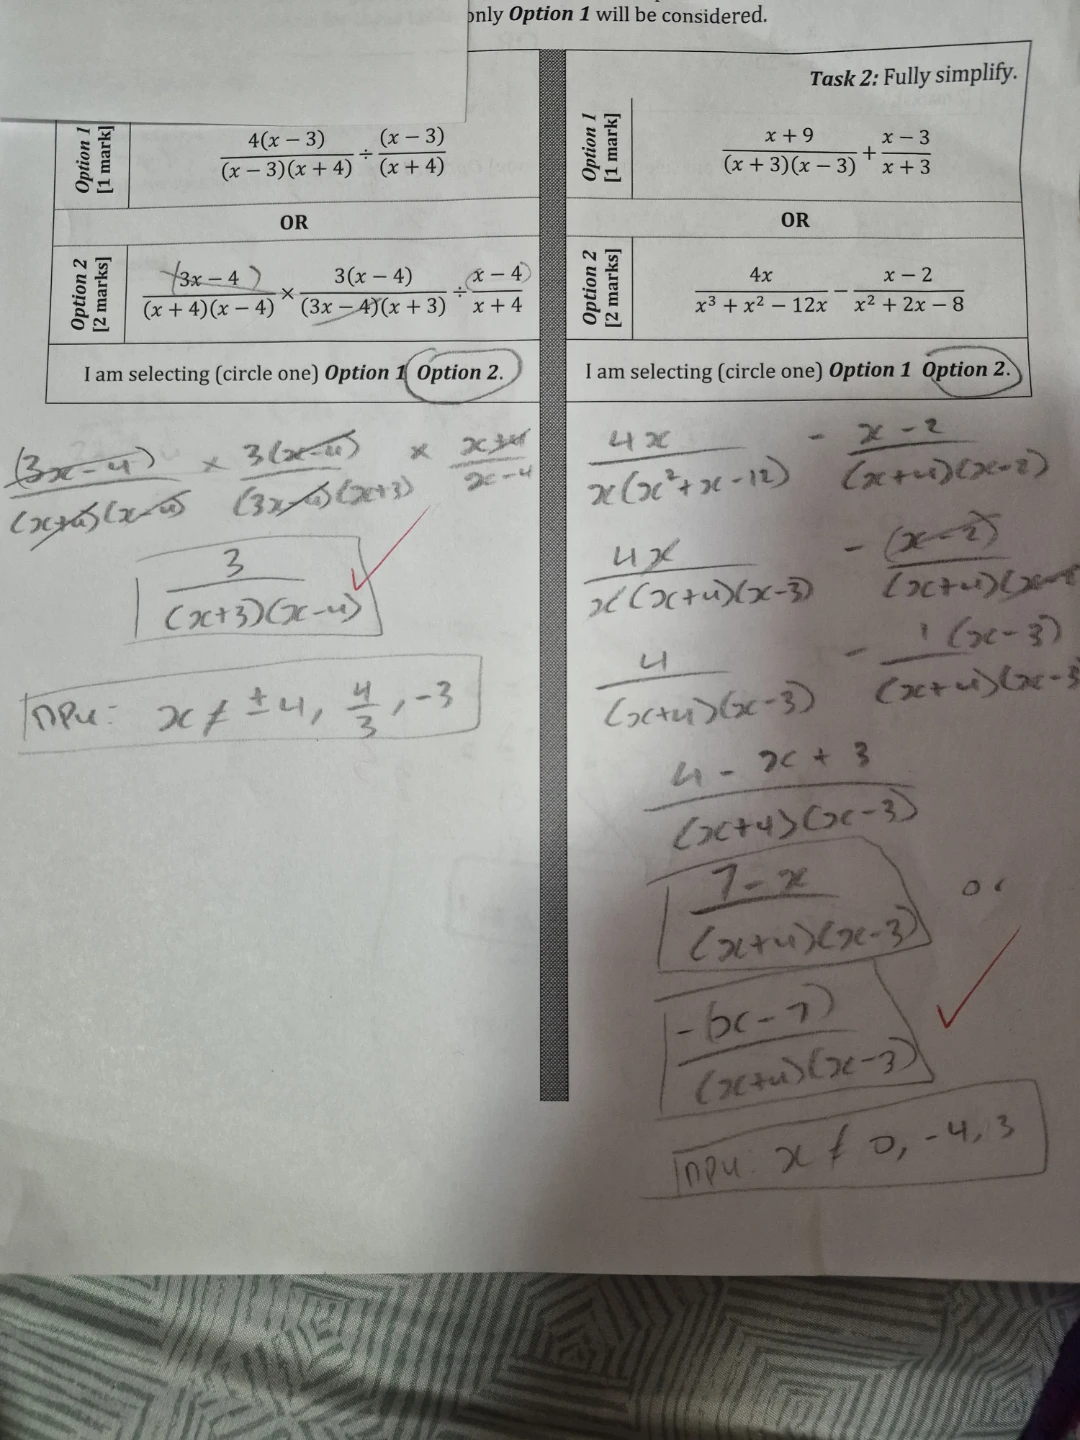 only Option 1 will be considered.
Option 1
[1 mark]
4(x − 3)/((x − 3)(x + 4)) ÷ (x − 3)/(x + 4)
OR
Option 2
[2 marks]
(3x − 4)/((x + 4)(x − 4)) × 3(x − 4)/((3x − 4)(x + 3)) ÷ (x − 4)/(x + 4)
I am selecting (circle one) Option 1 Option 2.
(3x-4)/((x+4)(x-4)) × 3(x-4)/((3x-4)(x+3)) × (x+4)/(x-4)
3/((x+3)(x-4))
NPV: x ≠ ±4, 4/3, -3
Task 2: Fully simplify.
Option 1
[1 mark]
(x + 9)/((x + 3)(x − 3)) + (x − 3)/(x + 3)
OR
Option 2
[2 marks]
4x/(x³ + x² − 12x) − (x − 2)/(x² + 2x − 8)
I am selecting (circle one) Option 1 Option 2.
4x/(x(x²+x-12)) - (x-2)/((x+4)(x-2))
4x/(x(x+4)(x-3)) - (x-2)/((x+4)(x-2))
4/((x+4)(x-3)) - 1(x-3)/((x+4)(x-3))
(4-x+3)/((x+4)(x-3))
(7-x)/((x+4)(x-3)) or
-(x-7)/((x+4)(x-3))
NPV: x ≠ 0, -4, 3